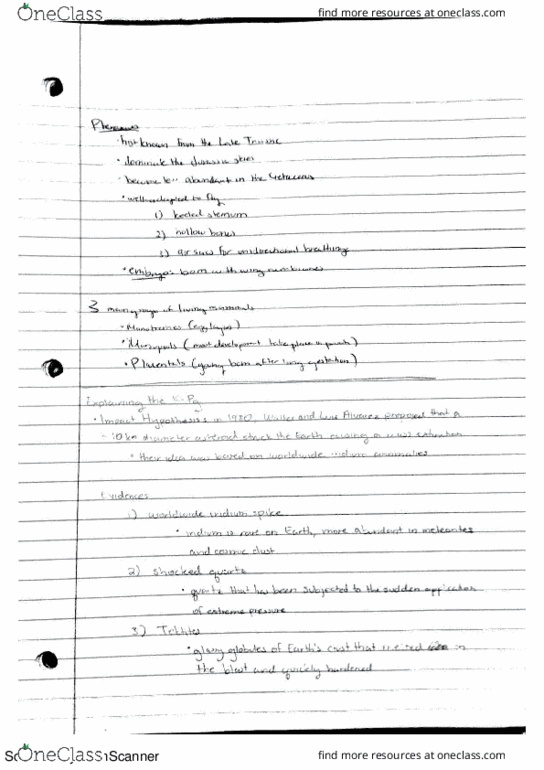 OneClass find more resources at oneclass.com
first known from the Late Triassic
dominate the Jurassic skies
become less abundant in the Cretaceous
well-adapted to fly
1) keeled sternum
2) hollow bones
3) air sacs for unidirectional breathing
embryos born with wing membranes
3 main groups of living mammals
Monotremes (egg layers)
Marsupials (most development takes place in pouch)
Placentals (young born after long gestation)
Explaining the K-Pg
Impact Hypothesis in 1980, Walter and Luis Alvarez proposed that a
~10 km diameter asteroid struck the Earth causing a mass extinction
their idea was based on worldwide iridium anomalies
Evidences
1) worldwide iridium spike
iridium is rare on Earth, more abundant in meteorites
and cosmic dust
2) shocked quartz
quartz that has been subjected to the sudden application
of extreme pressure
3) Tektites
glassy globules of Earth's crust that melted in
the blast and quickly hardened
OneClass Scanner find more resources at oneclass.com